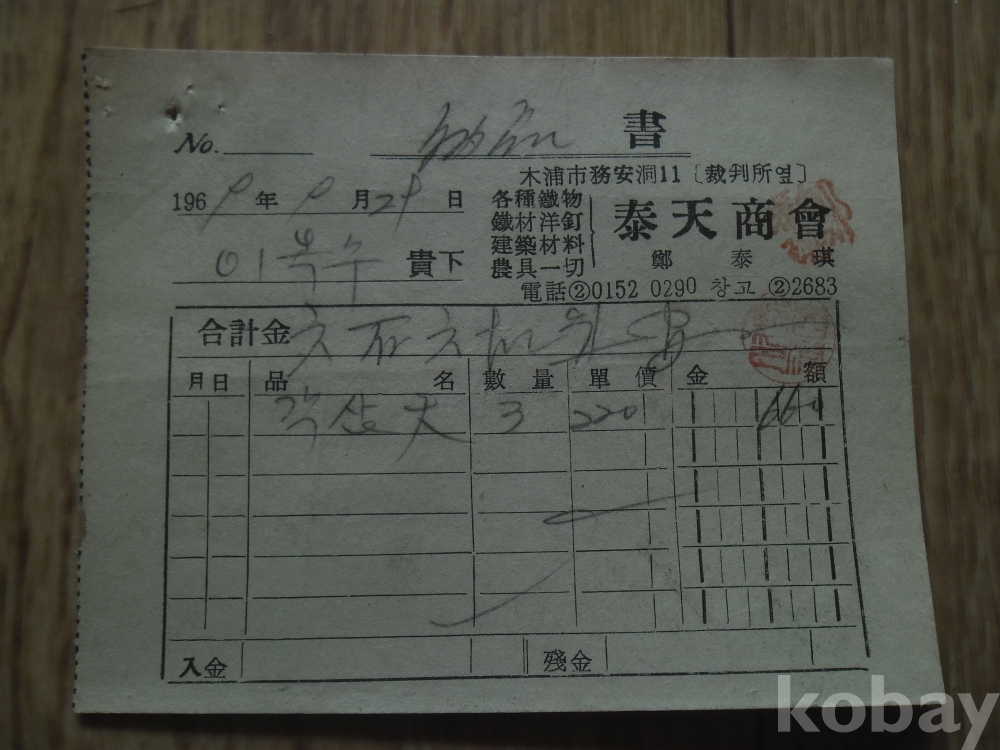 No. 書
木浦市務安洞11〔裁判所옆〕
1969年 9月29日
各種鐵物
鐵材洋釘
建築材料
農具一切
泰天商會
鄭泰琪
이복수 貴下
電話②0152 0290 창고 ②2683
合計金
月日 品名 數量 單價 金額
3 220 660
入金 殘金
kobay